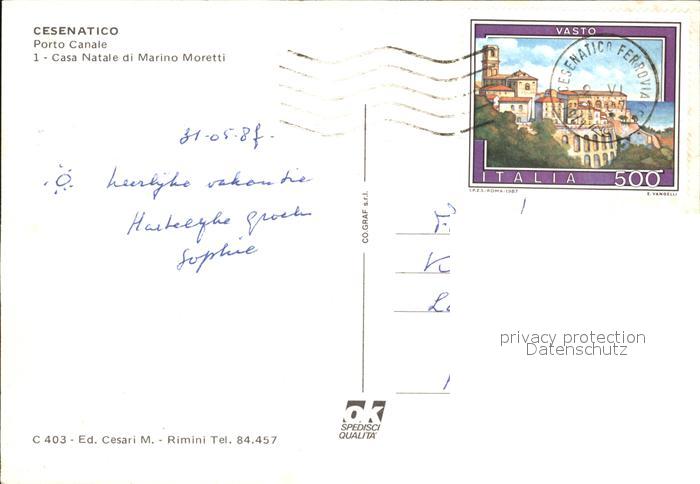 CESENATICO
Porto Canale
1 - Casa Natale di Marino Moretti
VASTO
CESENATICO FERROVIA
ITALIA 500
I.P.Z.S.-ROMA-1987 E. VANGELLI
31-05-87.
heerlijke vakantie
Hartelijke groeten
Sophie
CO.GRAF s.r.l.
privacy protection
Datenschutz
ok
SPEDISCI
QUALITA'
C 403 - Ed. Cesari M. - Rimini Tel. 84.457